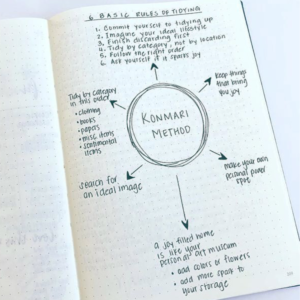 6 BASIC RULES OF TIDYING
1. Commit yourself to tidying up
2. Imagine your ideal lifestyle
3. Finish discarding first
4. Tidy by category, not by location
5. Follow the right order
6. Ask yourself if it sparks joy
keep things
that bring
you joy
Tidy by category
in this order
• clothing
• books
• papers
• misc items
• sentimental
items
KONMARI
METHOD
search for
an ideal image
make your own
personal power
spot
a joy filled home
is like your
personal art museum
• add colors or flowers
• add more spark to
your storage